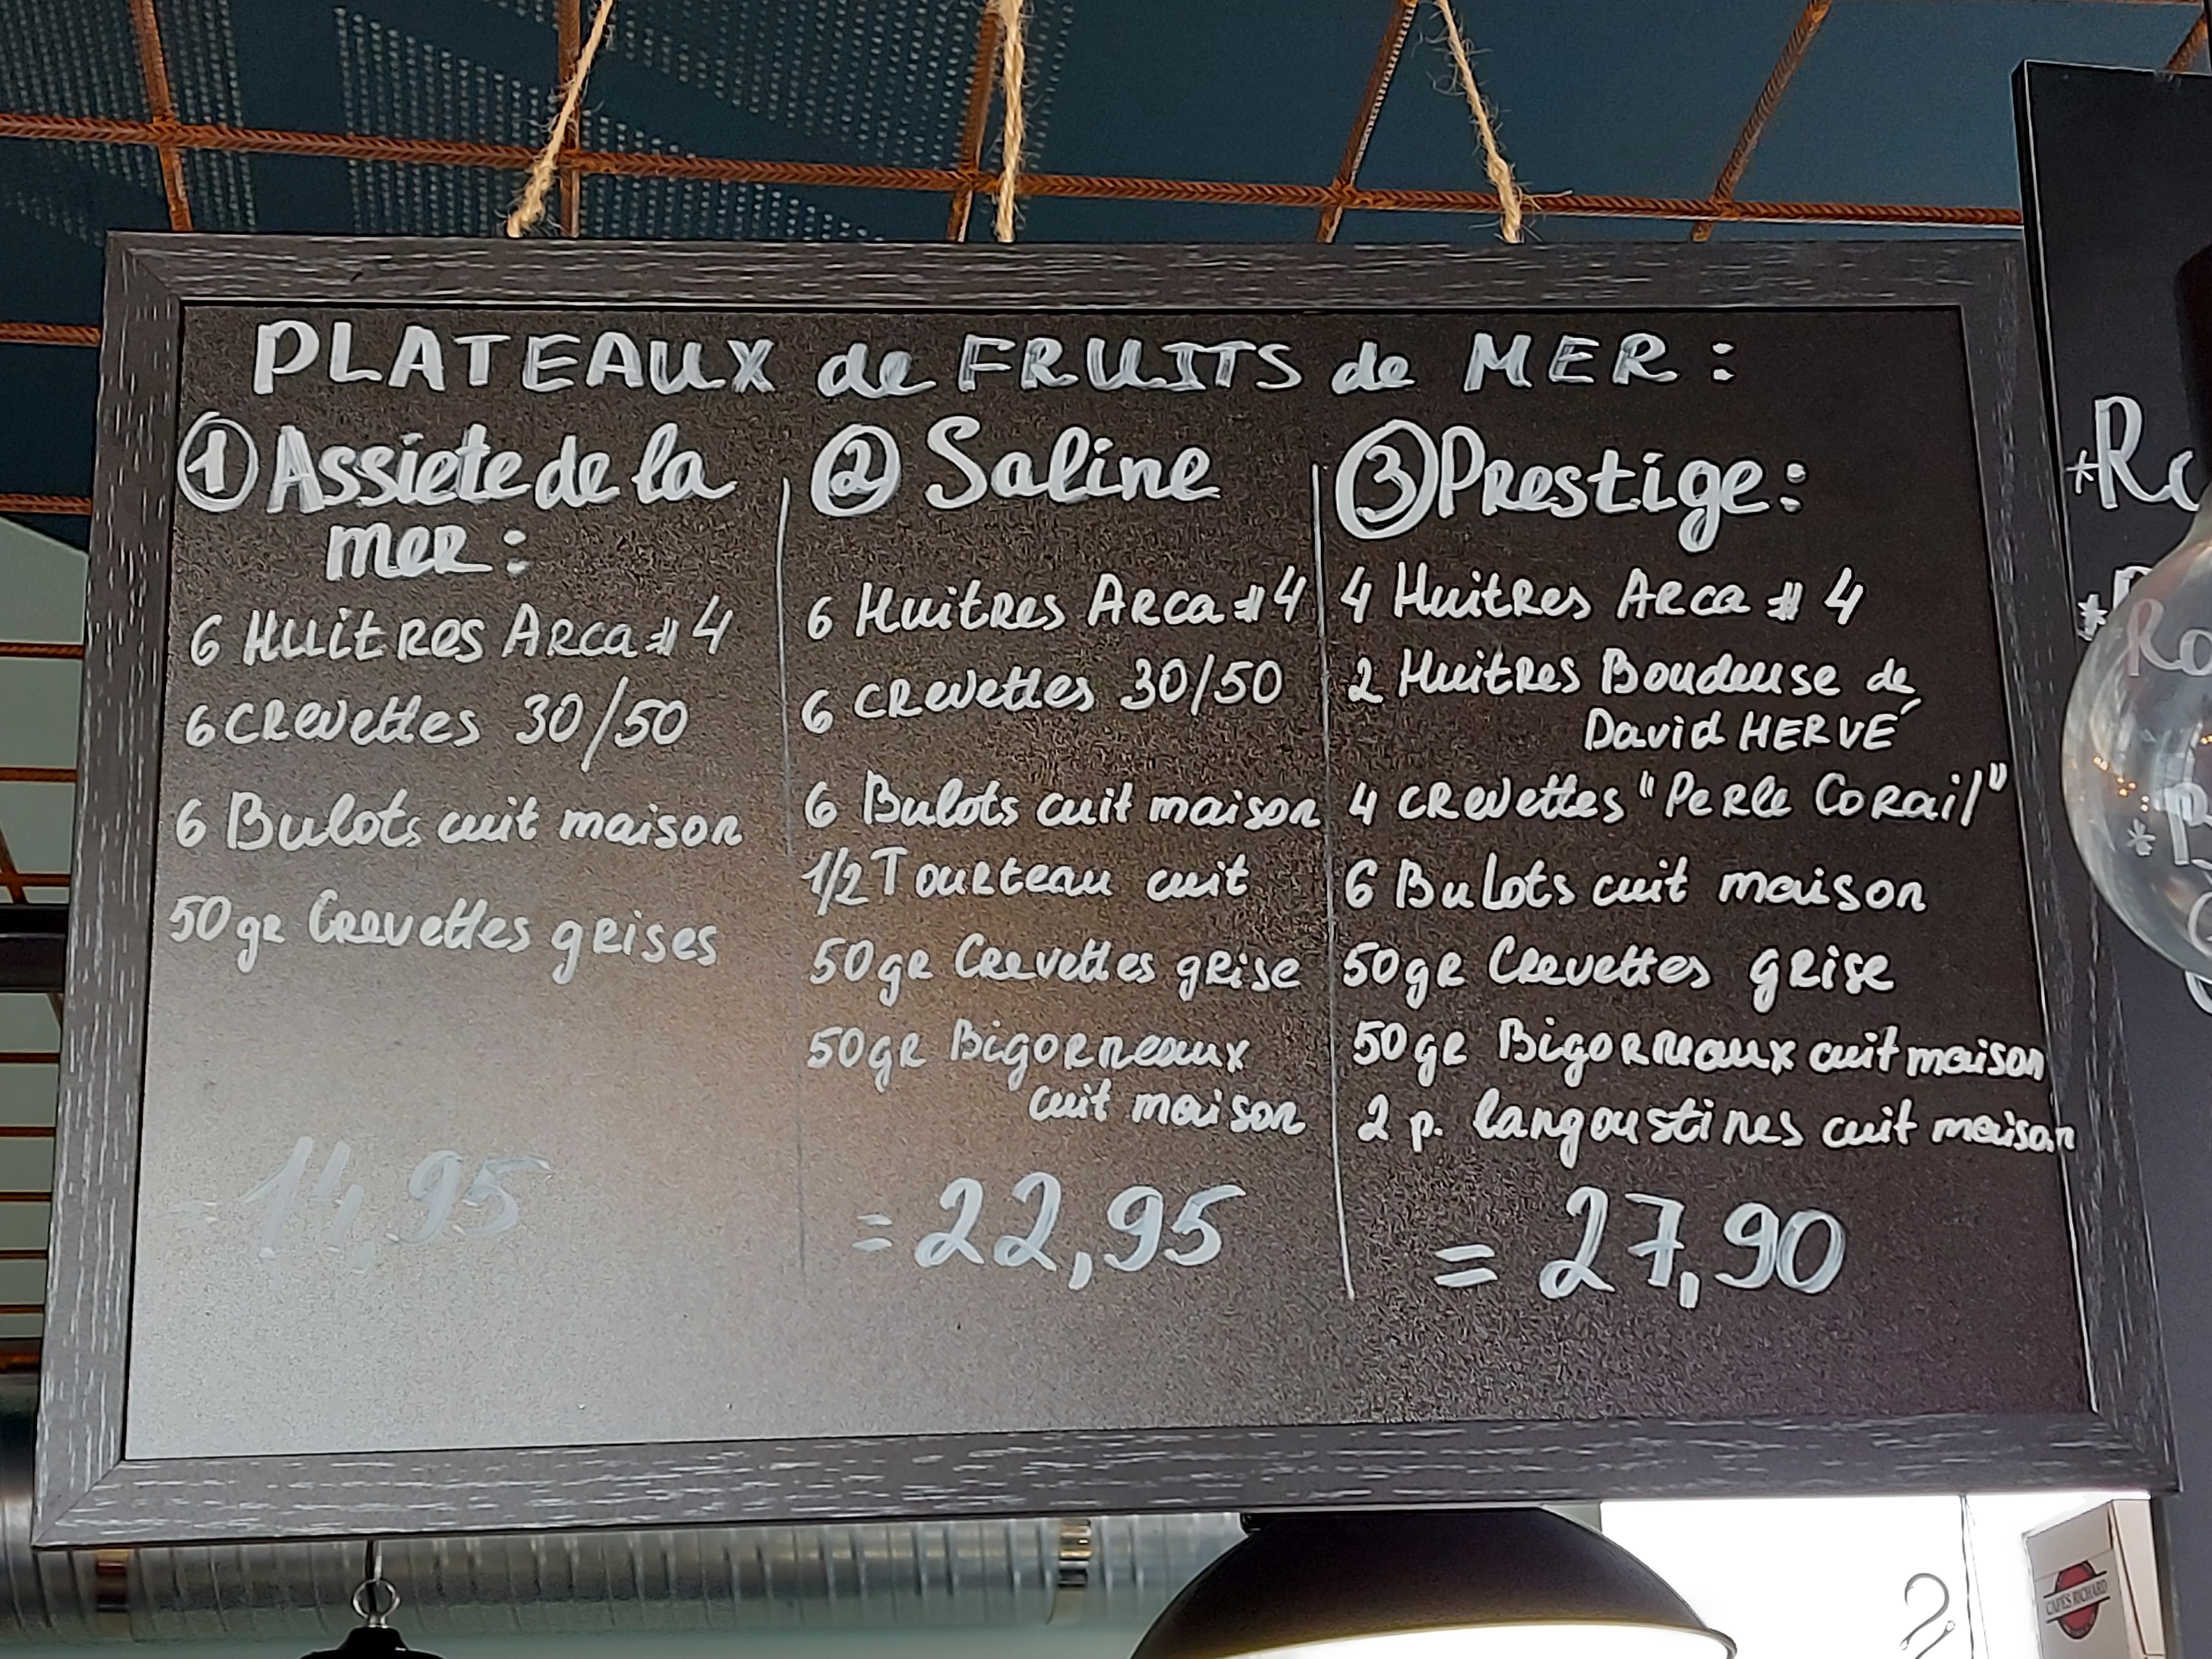 PLATEAUX de FRUITS de MER :
① Assiete de la
mer :
6 Huitres Arca # 4
6 Crevettes 30/50
6 Bulots cuit maison
50 gr Crevettes grises
14,95
② Saline
6 Huitres Arca # 4
6 Crevettes 30/50
6 Bulots cuit maison
1/2 Tourteau cuit
50 gr Crevettes grise
50 gr Bigorneaux
cuit maison
= 22,95
③ Prestige :
4 Huitres Arca # 4
2 Huitres Boudeuse de
David HERVÉ
4 Crevettes "Perle Corail"
6 Bulots cuit maison
50 gr Crevettes grise
50 gr Bigorneaux cuit maison
2 p. langoustines cuit maison
= 27,90
CAFÉS RICHARD